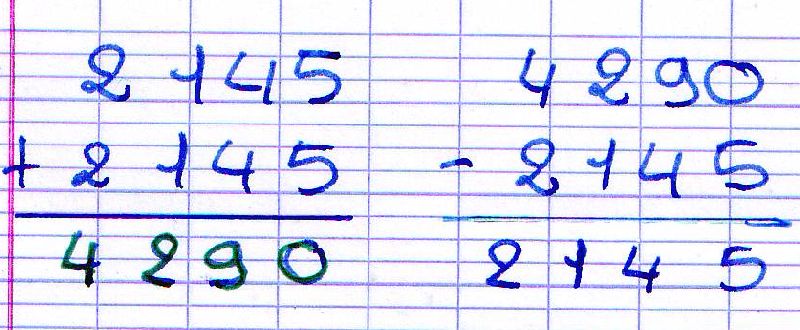 2145 4290
+ 2145 - 2145
4290 2145